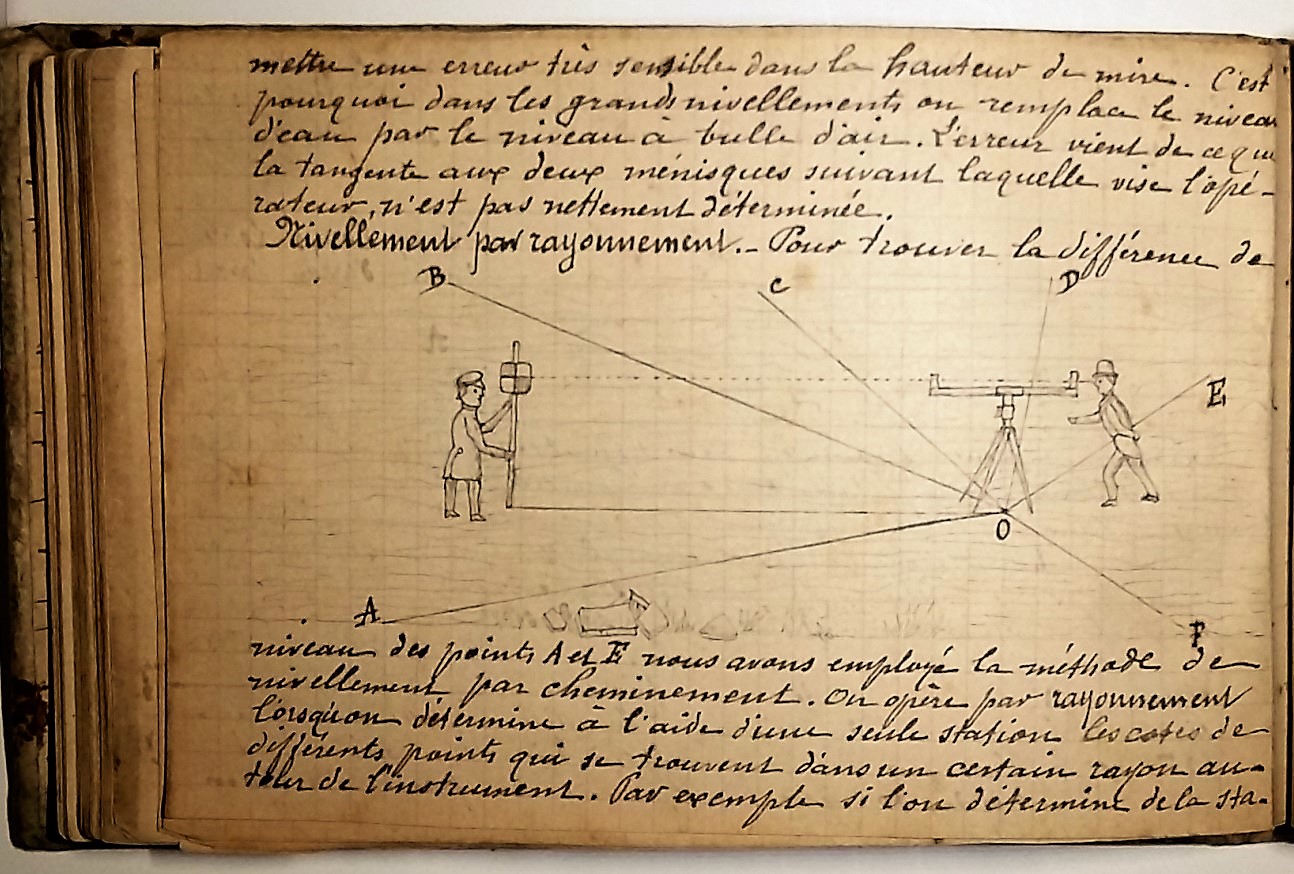 mettre une erreur très sensible dans la hauteur de mire. C'est
pourquoi dans les grands nivellements on remplace le niveau
d'eau par le niveau à bulle d'air. L'erreur vient de ce que
la tangente aux deux ménisques suivant laquelle vise l'opé-
rateur, n'est pas nettement déterminée.
Nivellement par rayonnement. _ Pour trouver la différence de
B C D
E
O
A
F
niveau des points A et E nous avons employé la méthode de
nivellement par cheminement. On opère par rayonnement
lorsqu'on détermine à l'aide d'une seule station les cotes de
différents points qui se trouvent dans un certain rayon au-
tour de l'instrument. Par exemple si l'on détermine de la sta-